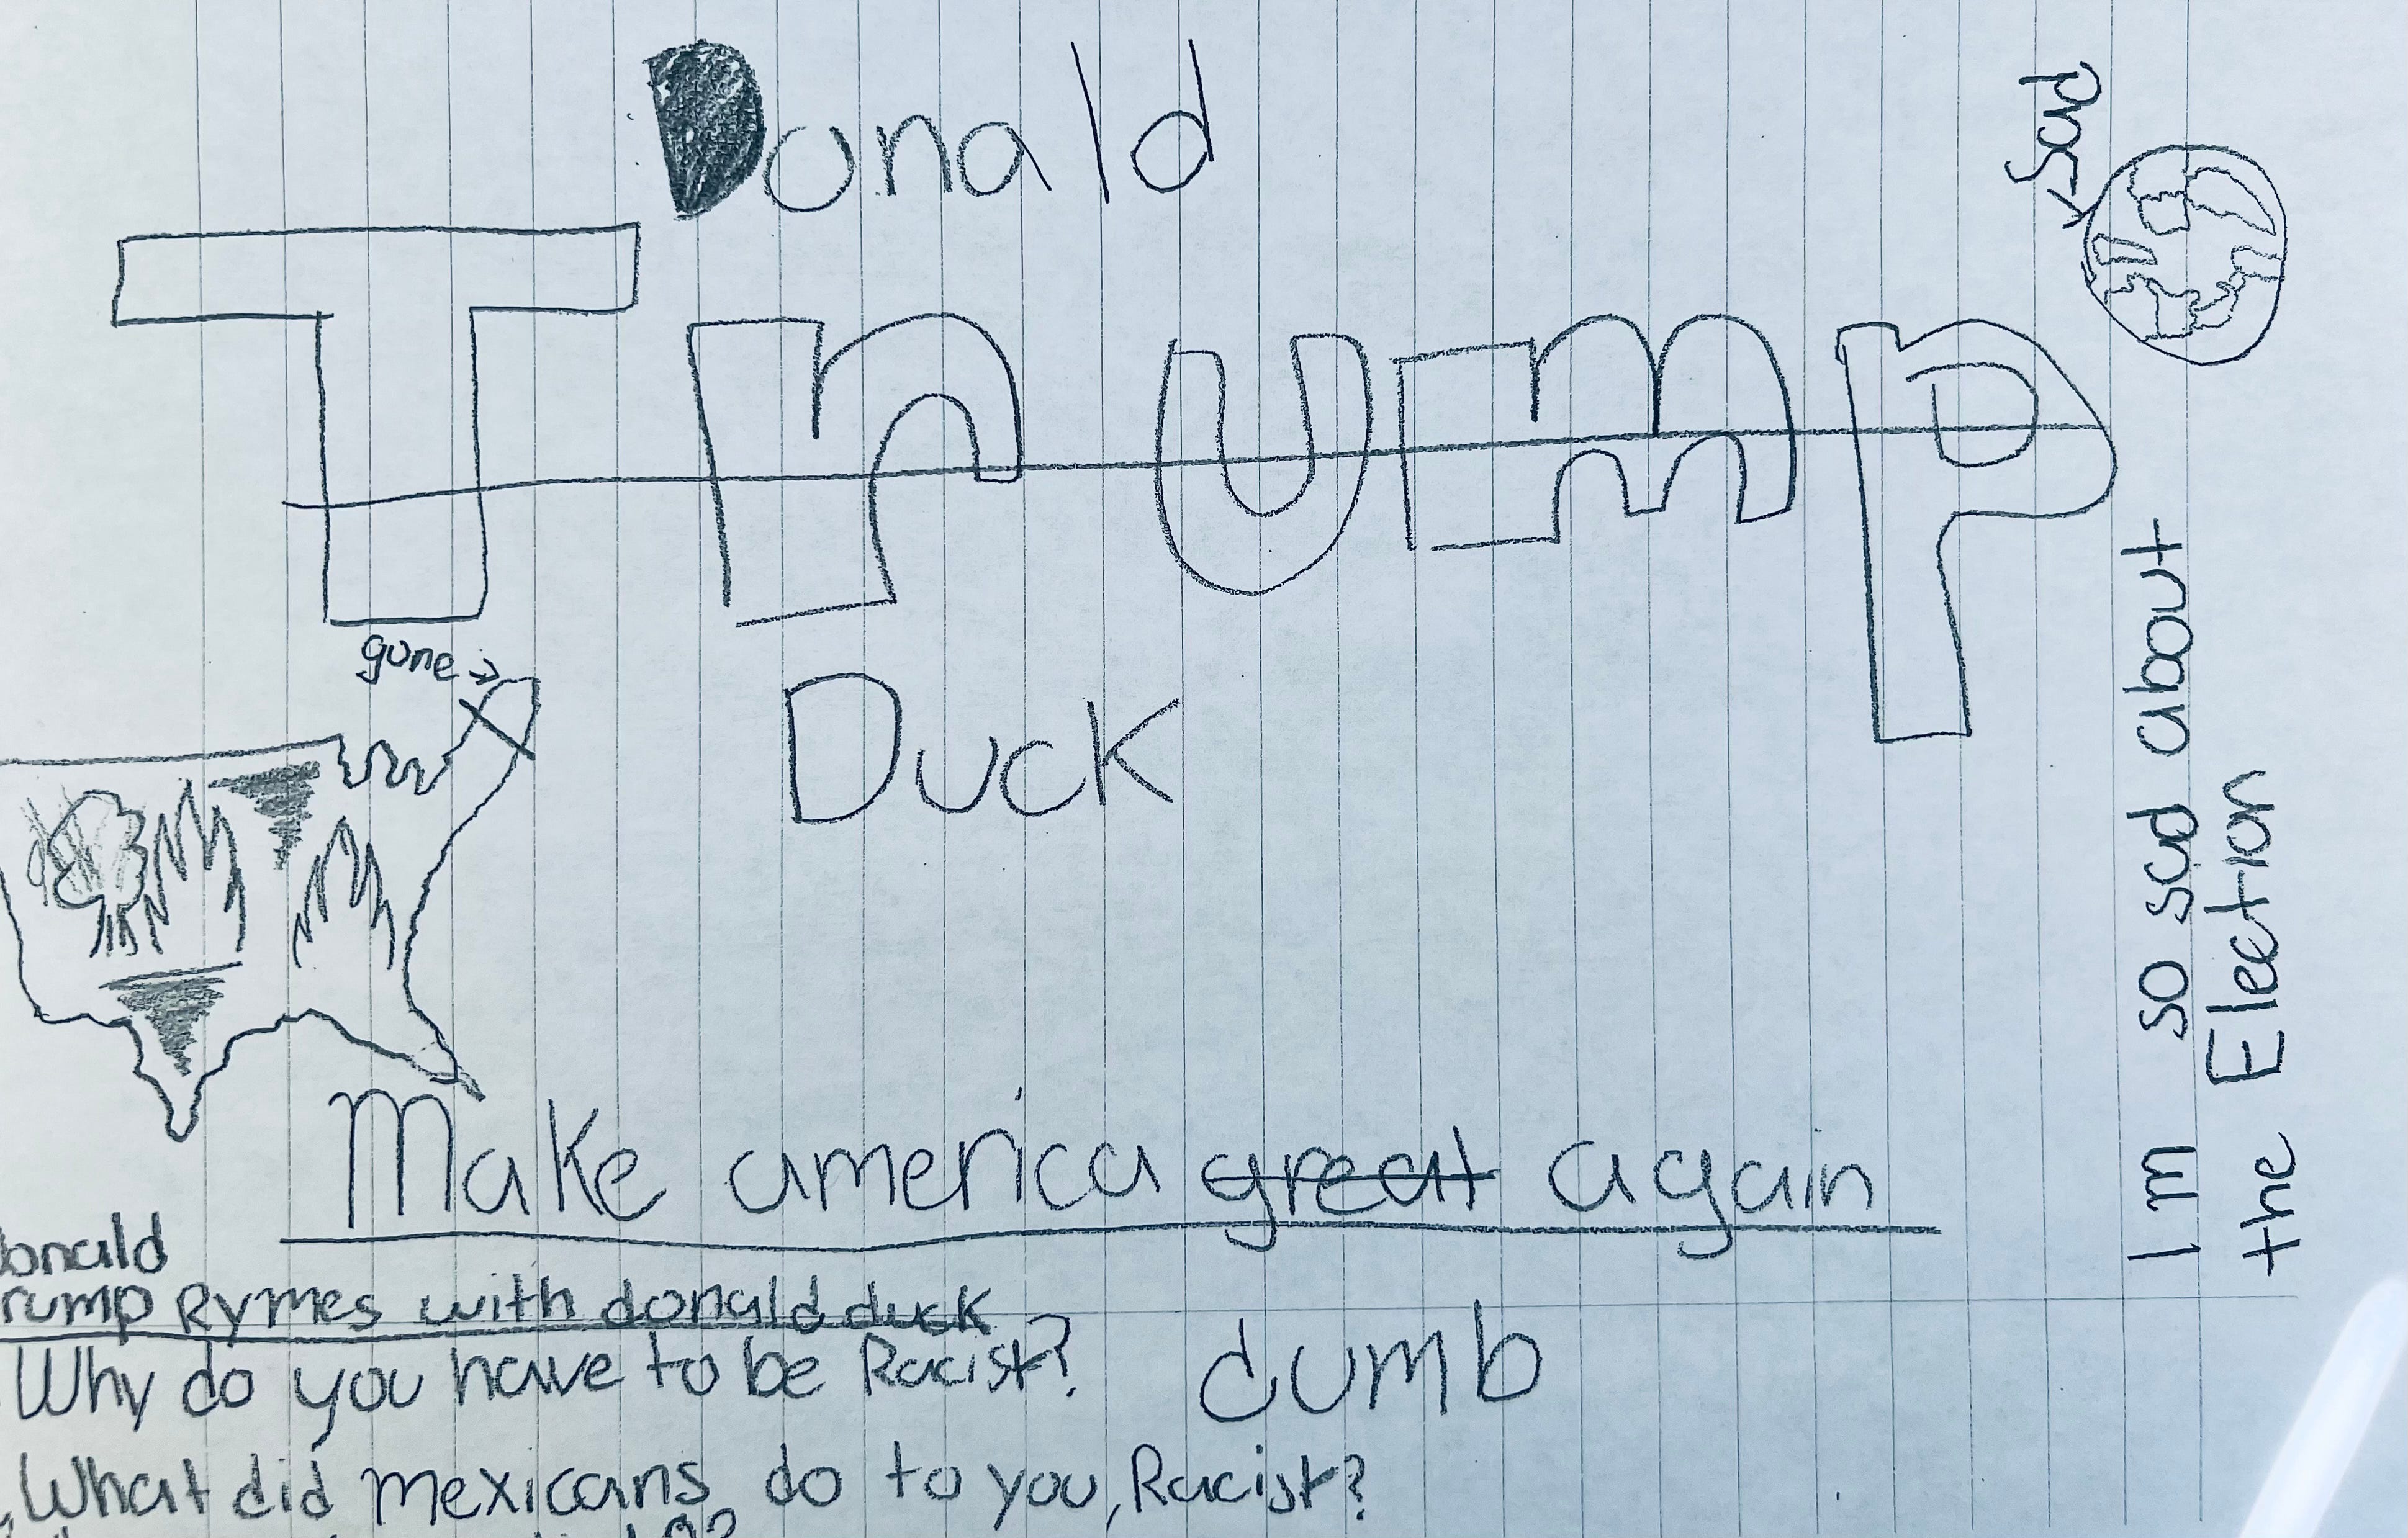 Donald
Sad
Trump
gone
Duck
Im so sad about
the Election
Make america great again
onald
rump Rymes with donald duck
Why do you have to be Racist?
dumb
What did mexicans do to you, Racist?